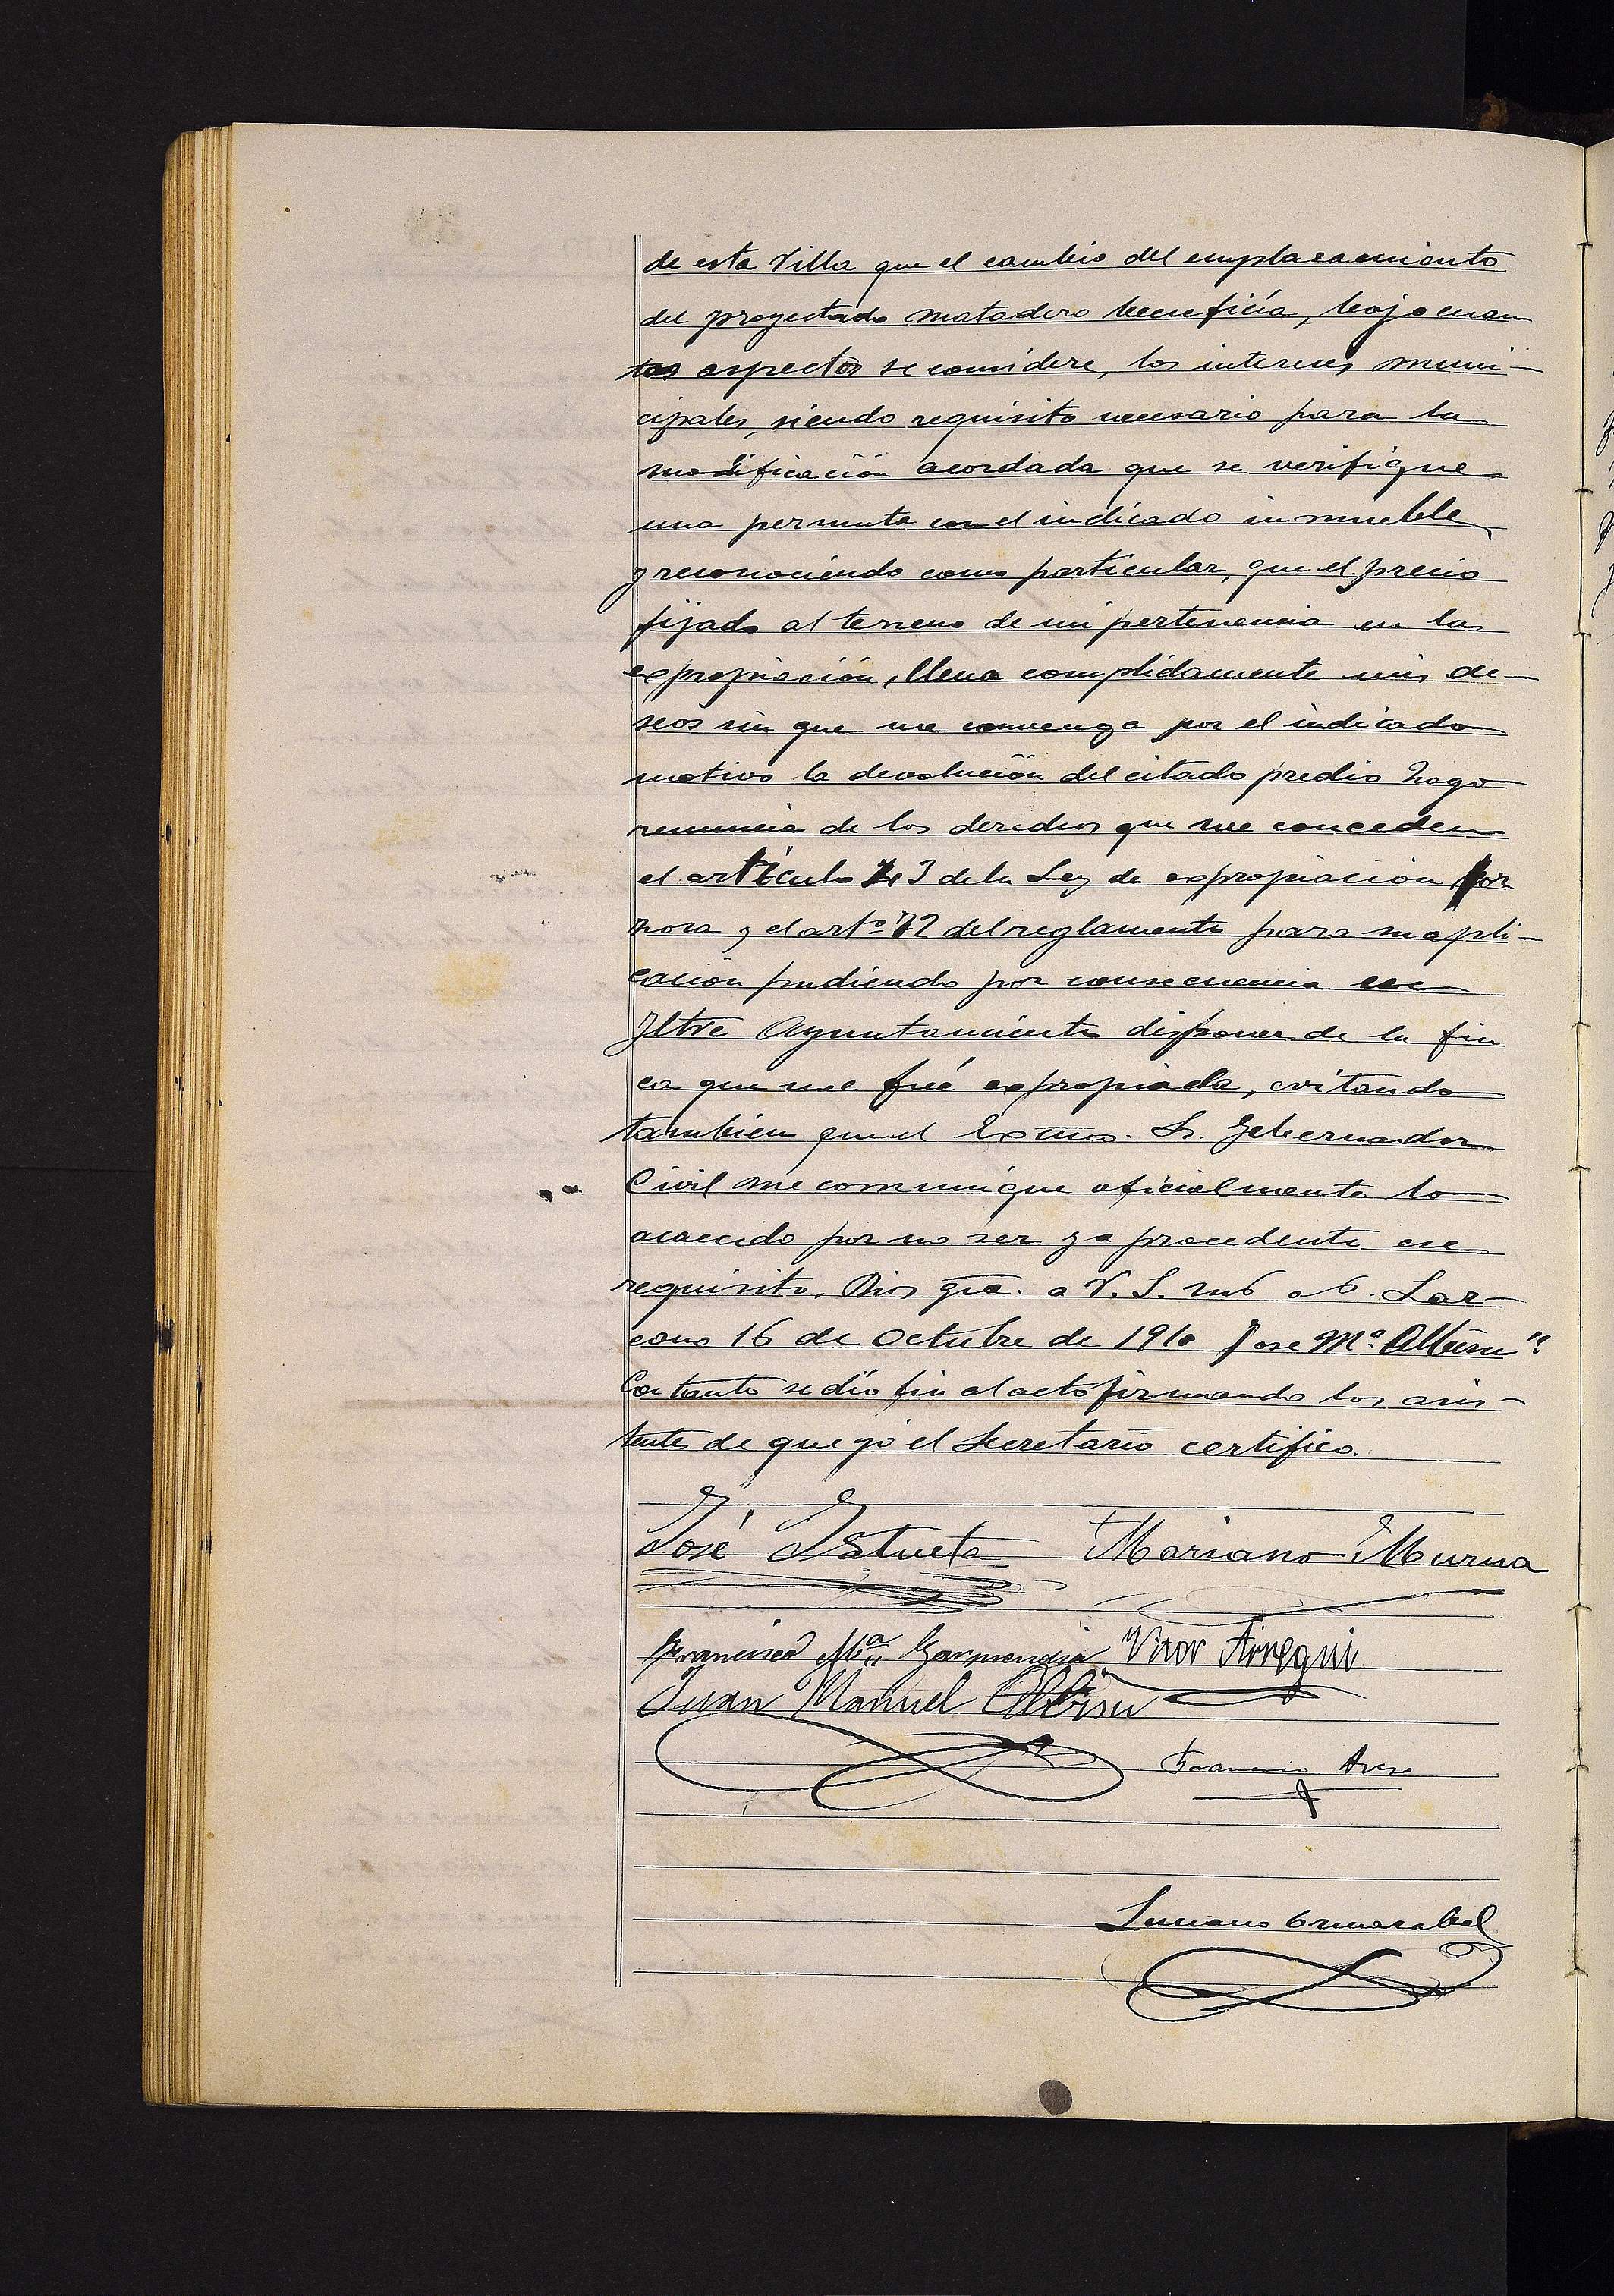 de esta Villa que el cambio del emplazamiento
del proyectado matadero beneficia, bajo cuan
tos aspectos se considere, los intereses muni-
cipales, siendo requisito necesario para la
modificación acordada que se verifique
una permuta con el indicado inmueble
y reconociendo como particular, que el precio
fijado al terreno de mi pertenencia en la
expropiación, llena complidamente mis de-
seos sin que me convenga por el indicado
motivo la devolución del citado predio hago
renuncia de los derechos que me conceden
el artículo 43 de la Ley de expropiación for
zosa y el artº 72 del reglamento para su apli-
cación pudiendo por consecuencia ese
Iltre Ayuntamiento disponer de la fin
ca que me fué expropiada, evitando
tambien que el Excmo. Sr. Gobernador
Civil me comunique oficialmente lo
acaecido por no ser ya procedente ese
requisito. Dios gu̅e. a V. S. ms as. Laz-
cano 16 de Octubre de 1910 Jose Mª Albisu".
Con tanto se dió fin al acto firmando los asis-
tentes de que yo el Secretario certifico.
José Istueta Mariano Murua
Francisco Mª Garmendia Vitor Arregui
Juan Manuel Albisu
Francisco
Luciano